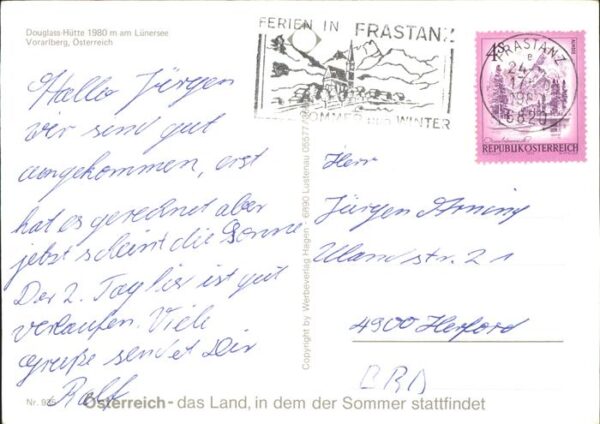 Douglass-Hütte 1980 m am Lünersee
Vorarlberg, Österreich
FERIEN IN FRASTANZ
SOMMER UND WINTER
FRASTANZ
6820
4S
REPUBLIK ÖSTERREICH
Hallo Jürgen
wir sind gut
angekommen, erst
hat es geregnet aber
jetzt scheint die Sonne
Der 2. Tag hier ist gut
verlaufen. Viele
grüße sendet Dir
Ralf
Copyright by Werbeverlag Hagen - 6890 Lustenau 05577
Herr
Jürgen
Uland str. 21
4900 Herford
BRD
Nr. 925
Österreich - das Land, in dem der Sommer stattfindet